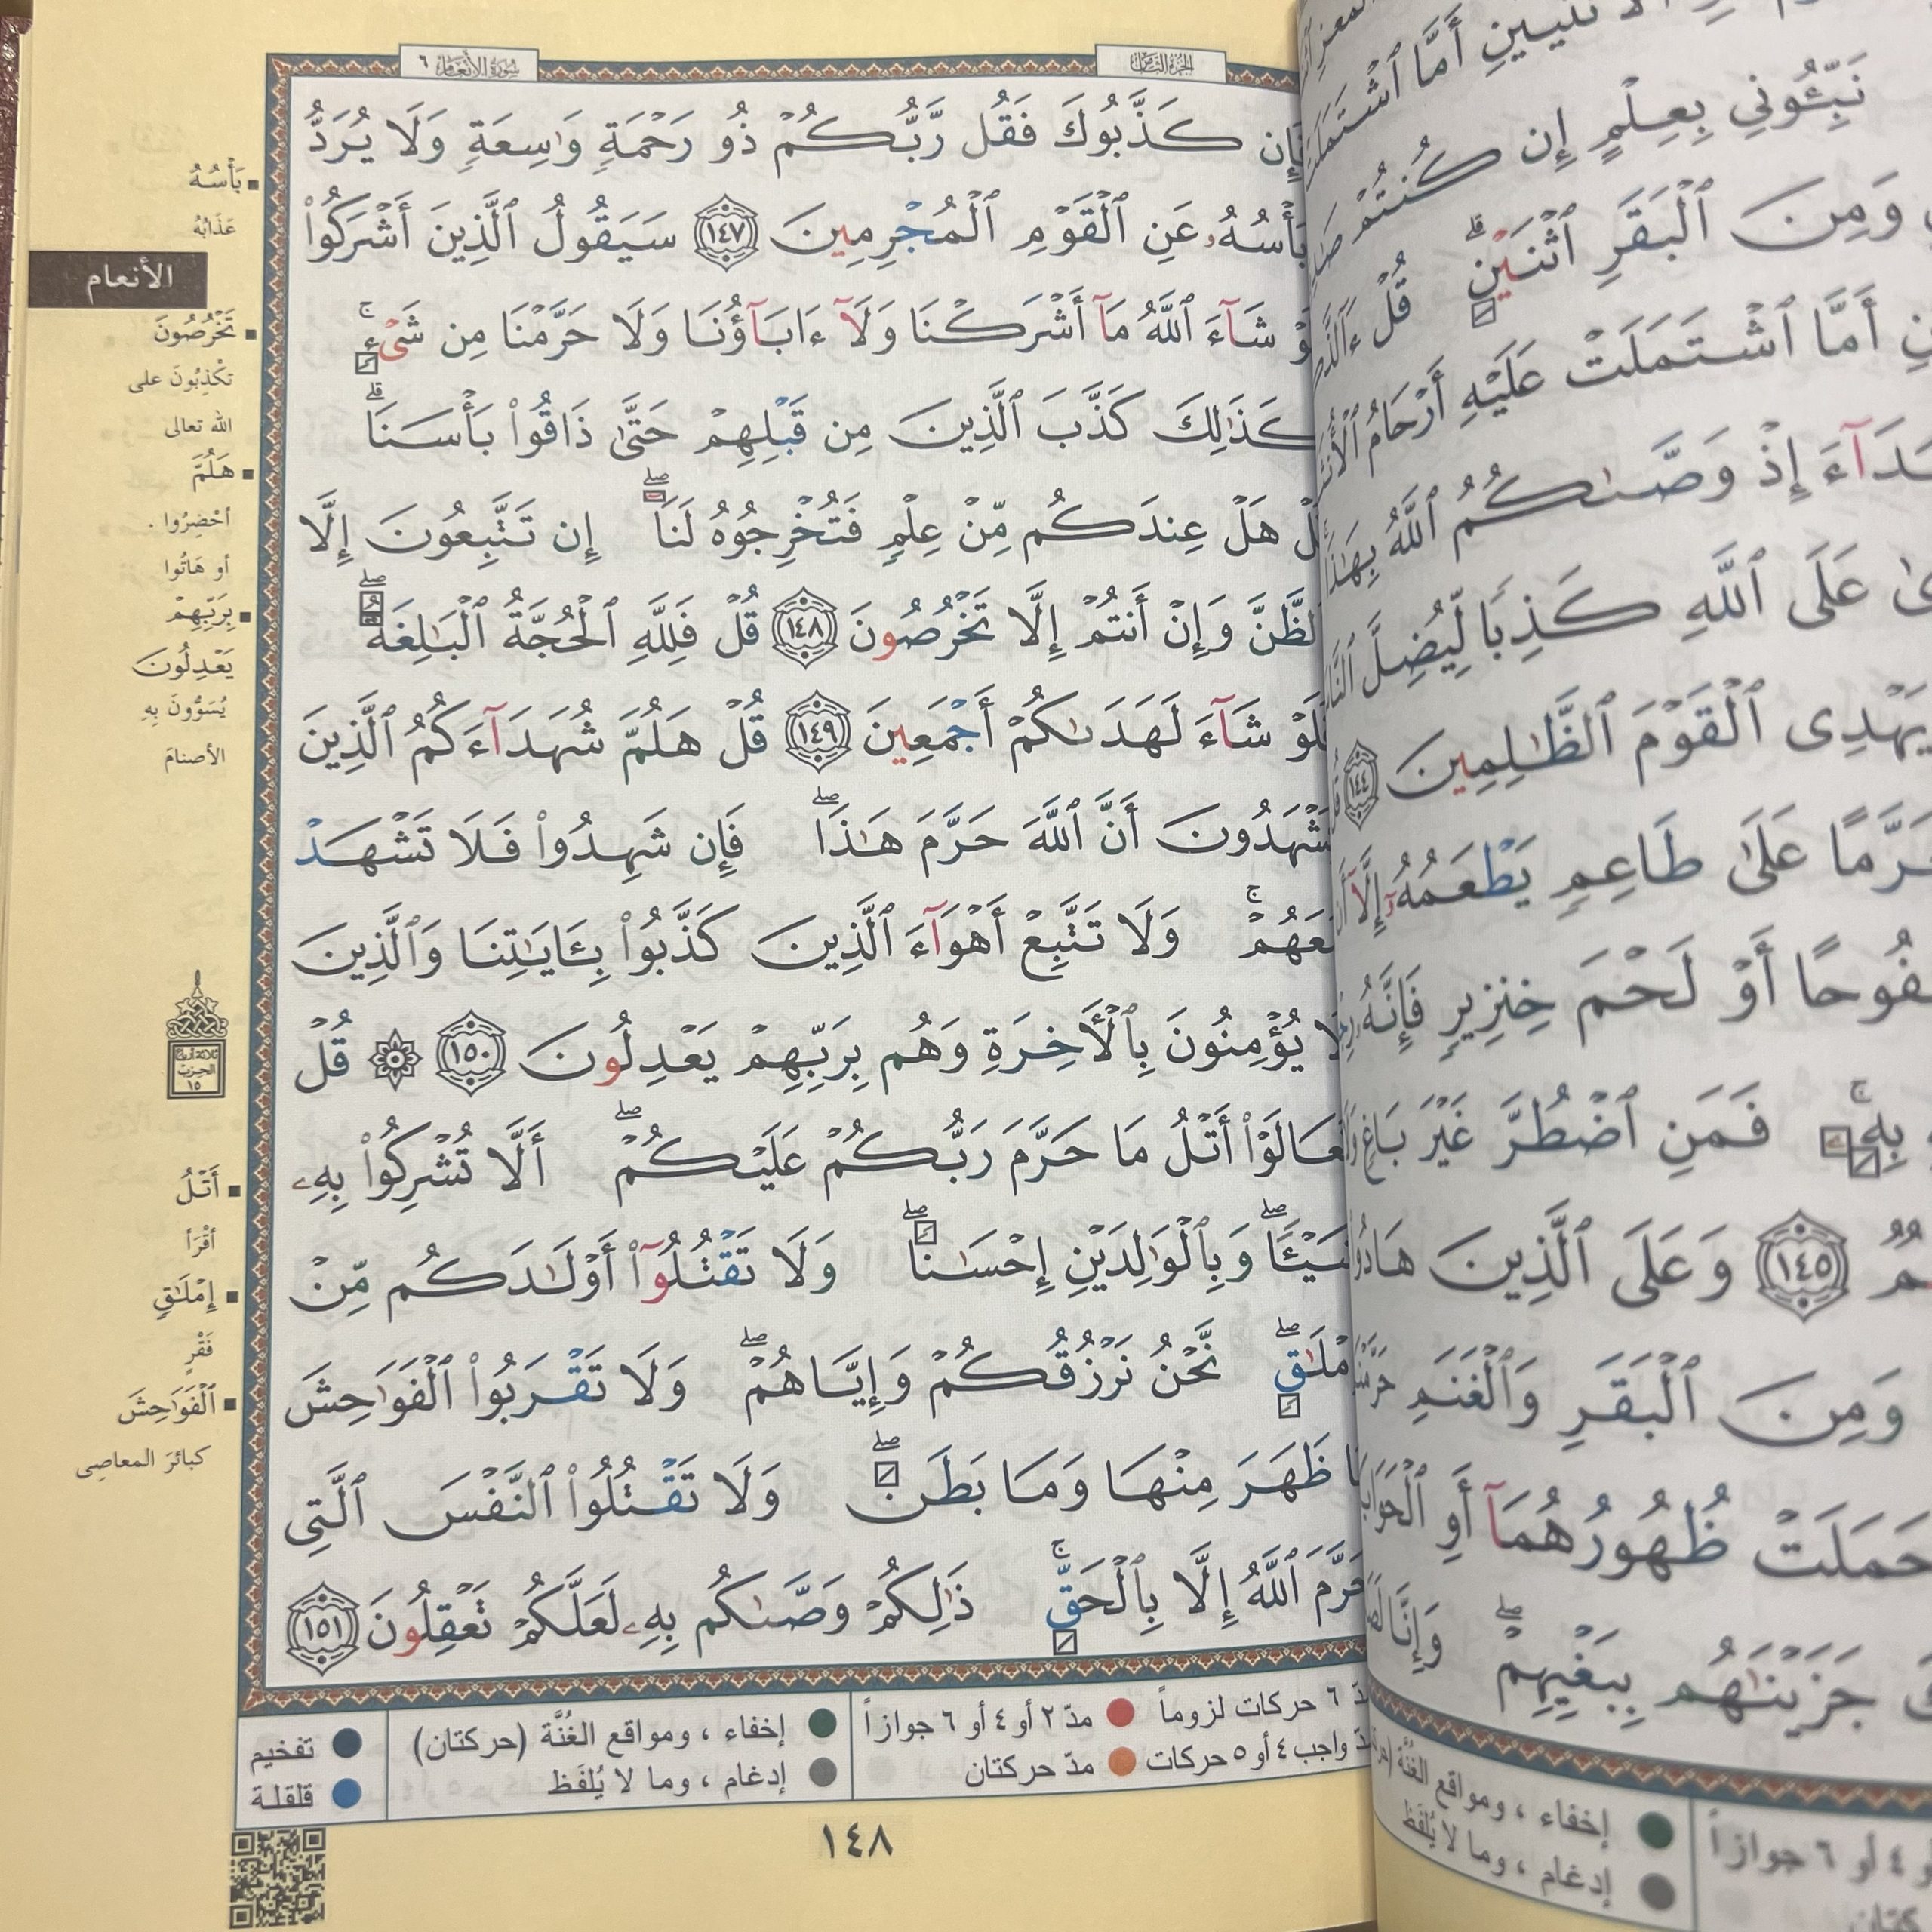 سورة الأنعام ٦
الجزء الثامن
كَذَّبُوكَ فَقُل رَّبُّكُمْ ذُو رَحْمَةٍ وَٰسِعَةٍ وَلَا يُرَدُّ
بَأْسُهُۥ عَنِ ٱلْقَوْمِ ٱلْمُجْرِمِينَ ١٤٧ سَيَقُولُ ٱلَّذِينَ أَشْرَكُوا۟
لَوْ شَآءَ ٱللَّهُ مَآ أَشْرَكْنَا وَلَآ ءَابَآؤُنَا وَلَا حَرَّمْنَا مِن شَىْءٍ ۚ
كَذَٰلِكَ كَذَّبَ ٱلَّذِينَ مِن قَبْلِهِمْ حَتَّىٰ ذَاقُوا۟ بَأْسَنَا ۗ
هَلْ عِندَكُم مِّنْ عِلْمٍ فَتُخْرِجُوهُ لَنَآ ۖ إِن تَتَّبِعُونَ إِلَّا
ٱلظَّنَّ وَإِنْ أَنتُمْ إِلَّا تَخْرُصُونَ ١٤٨ قُلْ فَلِلَّهِ ٱلْحُجَّةُ ٱلْبَٰلِغَةُ ۖ
فَلَوْ شَآءَ لَهَدَىٰكُمْ أَجْمَعِينَ ١٤٩ قُلْ هَلُمَّ شُهَدَآءَكُمُ ٱلَّذِينَ
يَشْهَدُونَ أَنَّ ٱللَّهَ حَرَّمَ هَٰذَا ۖ فَإِن شَهِدُوا۟ فَلَا تَشْهَدْ
مَعَهُمْ ۚ وَلَا تَتَّبِعْ أَهْوَآءَ ٱلَّذِينَ كَذَّبُوا۟ بِـَٔايَٰتِنَا وَٱلَّذِينَ
لَا يُؤْمِنُونَ بِٱلْـَٔاخِرَةِ وَهُم بِرَبِّهِمْ يَعْدِلُونَ ١٥٠ ۞ قُلْ
تَعَالَوْا۟ أَتْلُ مَا حَرَّمَ رَبُّكُمْ عَلَيْكُمْ ۖ أَلَّا تُشْرِكُوا۟ بِهِۦ
شَيْـًٔا ۖ وَبِٱلْوَٰلِدَيْنِ إِحْسَٰنًا ۖ وَلَا تَقْتُلُوٓا۟ أَوْلَٰدَكُم مِّنْ
إِمْلَٰقٍ ۖ نَّحْنُ نَرْزُقُكُمْ وَإِيَّاهُمْ ۖ وَلَا تَقْرَبُوا۟ ٱلْفَوَٰحِشَ
مَا ظَهَرَ مِنْهَا وَمَا بَطَنَ ۖ وَلَا تَقْتُلُوا۟ ٱلنَّفْسَ ٱلَّتِى
حَرَّمَ ٱللَّهُ إِلَّا بِٱلْحَقِّ ۚ ذَٰلِكُمْ وَصَّىٰكُم بِهِۦ لَعَلَّكُمْ تَعْقِلُونَ ١٥١
بَأْسُهُ
عَذَابُهُ
الأنعام
تَخْرُصُونَ
تَكْذِبُونَ على
الله تعالى
هَلُمَّ
أحْضِرُوا .
أو هَاتُوا
بِرَبِّهِمْ
يَعْدِلُونَ
يُسَوُّونَ بِهِ
الأصنامَ
ثلاثة أرباع
الحزب
١٥
أَتْلُ
أقْرَأ
إِمْلَٰقٍ
فَقْرٍ
ٱلْفَوَٰحِشَ
كبائرَ المعاصِى
٦ حركات لزوماً
مدّ ٢ أو ٤ أو ٦ جوازاً
إخفاء ، ومواقع الغُنَّة (حركتان)
تفخيم
مدّ واجب ٤ أو ٥ حركات
مدّ حركتان
إدغام ، وما لا يُلفَظ
قلقلة
١٤٨
أَمَّا ٱشْتَمَلَتْ
نَبِّـُٔونِى بِعِلْمٍ إِن كُنتُمْ
وَمِنَ ٱلْبَقَرِ ٱثْنَيْنِ ۗ قُلْ
أَمَّا ٱشْتَمَلَتْ عَلَيْهِ أَرْحَامُ
إِذْ وَصَّىٰكُمُ ٱللَّهُ بِهَٰذَا
عَلَى ٱللَّهِ كَذِبًا لِّيُضِلَّ
يَهْدِى ٱلْقَوْمَ ٱلظَّٰلِمِينَ ١٤٤
عَلَىٰ طَاعِمٍ يَطْعَمُهُۥٓ إِلَّآ
أَوْ لَحْمَ خِنزِيرٍ فَإِنَّهُۥ
بِهِۦ ۚ فَمَنِ ٱضْطُرَّ غَيْرَ بَاغٍ
١٤٥ وَعَلَى ٱلَّذِينَ هَادُوا۟
وَمِنَ ٱلْبَقَرِ وَٱلْغَنَمِ
حَمَلَتْ ظُهُورُهُمَآ أَوِ
جَزَيْنَٰهُم بِبَغْيِهِمْ ۖ وَإِنَّا
٤ أو ٦ جوازاً
إخفاء ، ومواقع الغُنَّة
إدغام ، وما لا يُلفَظ